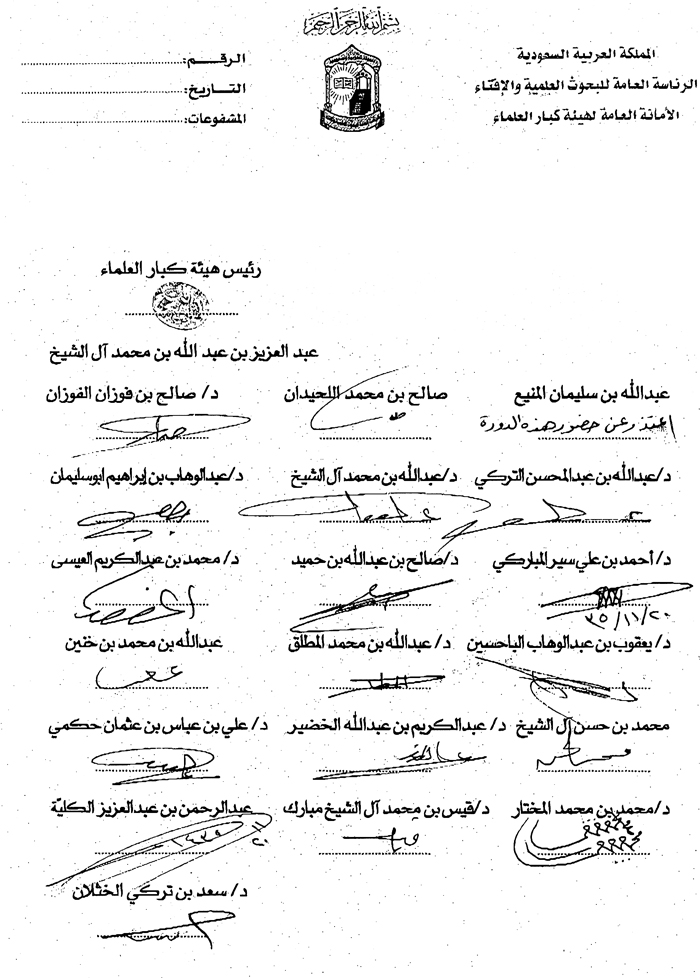 بسم الله الرحمن الرحيم
المملكة العربية السعودية
الرئاسة العامة للبحوث العلمية والإفتاء
الأمانة العامة لهيئة كبار العلماء
الرقم:
التاريخ:
المشفوعات:
رئيس هيئة كبار العلماء
عبد العزيز بن عبد الله بن محمد آل الشيخ
عبدالله بن سليمان المنيع صالح بن محمد اللحيدان د/ صالح بن فوزان الفوزان
اعتذر عن حضور هذه الدورة
د/عبدالله بن عبدالمحسن التركي د/عبدالله بن محمد آل الشيخ د/عبدالوهاب بن إبراهيم ابوسليمان
د/ أحمد بن علي سير المباركي د/صالح بن عبدالله بن حميد د/ محمد بن عبدالكريم العيسى
٣٥/١١/٢٠
د/ يعقوب بن عبدالوهاب الباحسين د/ عبدالله بن محمد المطلق عبدالله بن محمد بن خنين
محمد بن حسن آل الشيخ د/ عبدالكريم بن عبدالله الخضير د/ علي بن عباس بن عثمان حكمي
د/محمد بن محمد المختار د/قيس بن محمد آل الشيخ مبارك عبدالرحمن بن عبدالعزيز الكلية
د/ سعد بن تركي الخثلان